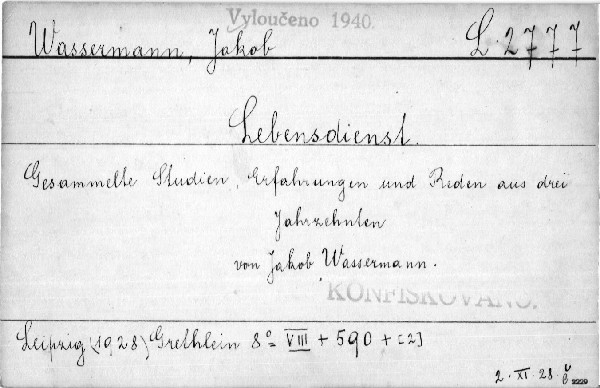 Vyloučeno 1940.
Wassermann, Jakob L 2777
Lebensdienst.
Gesammelte Studien, Erfahrungen und Reden aus drei
Jahrzehnten
von Jakob Wassermann.
KONFISKOVÁNO.
Leipzig (1928) Grethlein 8° VIII + 590 + [2]
2. XI. 28.